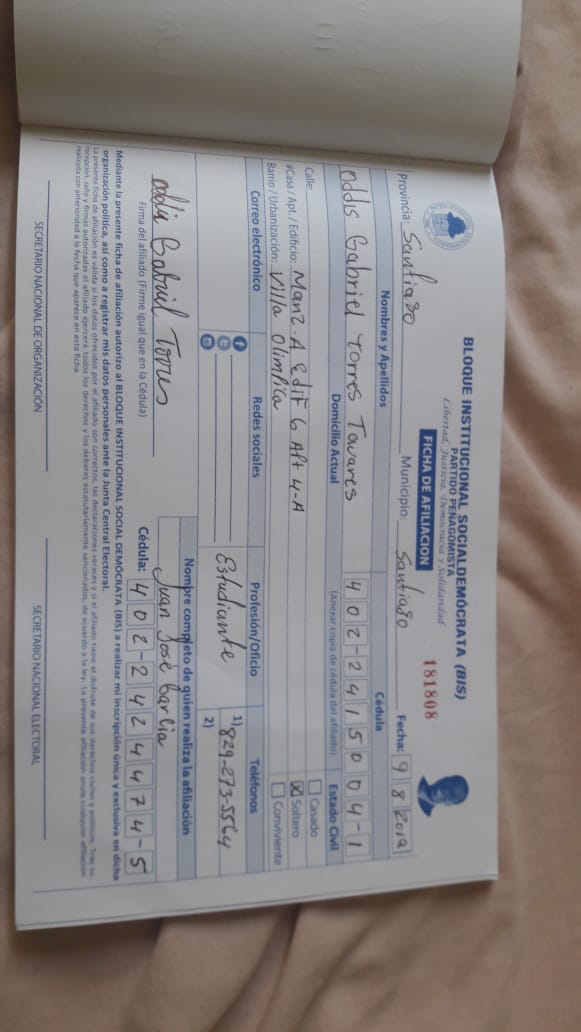 BLOQUE INSTITUCIONAL SOCIALDEMÓCRATA (BIS)
PARTIDO PEÑAGOMISTA
Libertad, Justicia, Democracia y Solidaridad
FICHA DE AFILIACION
181808
Provincia: Santiago Municipio: Santiago Fecha: 9 8 2019
Nombres y Apellidos Cédula
Oddis Gabriel Torres Tavares 402-2415004-1
Domicilio Actual (Anexar copia de cédula del afiliado) Estado Civil
Calle: Casado
#Casa / Apt. / Edificio: Manz. A Edif 6 Apt 4-A Soltero
Barrio / Urbanización: Villa Olimpica Conviviente
Correo electrónico Redes sociales Profesión/Oficio Teléfonos
Estudiante 1) 829-273-5564
2)
Nombre completo de quien realiza la afiliación
Oddis Gabriel Torres Juan José
Firma del afiliado (Firme igual que en la Cédula) Cédula: 402-2424474-5
Mediante la presente ficha de afiliación autorizo al BLOQUE INSTITUCIONAL SOCIAL DEMÓCRATA (BIS) a realizar mi inscripción única y exclusiva en dicha
organización política, así como a registrar mis datos personales ante la Junta Central Electoral.
La presente ficha de afiliación es válida si los datos ofrecidos por el afiliado son correctos, las declaraciones veraces y si el afiliado tiene el disfrute de sus derechos civiles y políticos. Tras su
recepción, sello y firmas autorizadas el afiliado ejercerá todos los derechos y los deberes estatutariamente sancionados, de acuerdo a la ley. La presente afiliación anula cualquier afiliación
realizada con anterioridad a la fecha que aparece en esta ficha.
SECRETARIO NACIONAL DE ORGANIZACIÓN SECRETARIO NACIONAL ELECTORAL